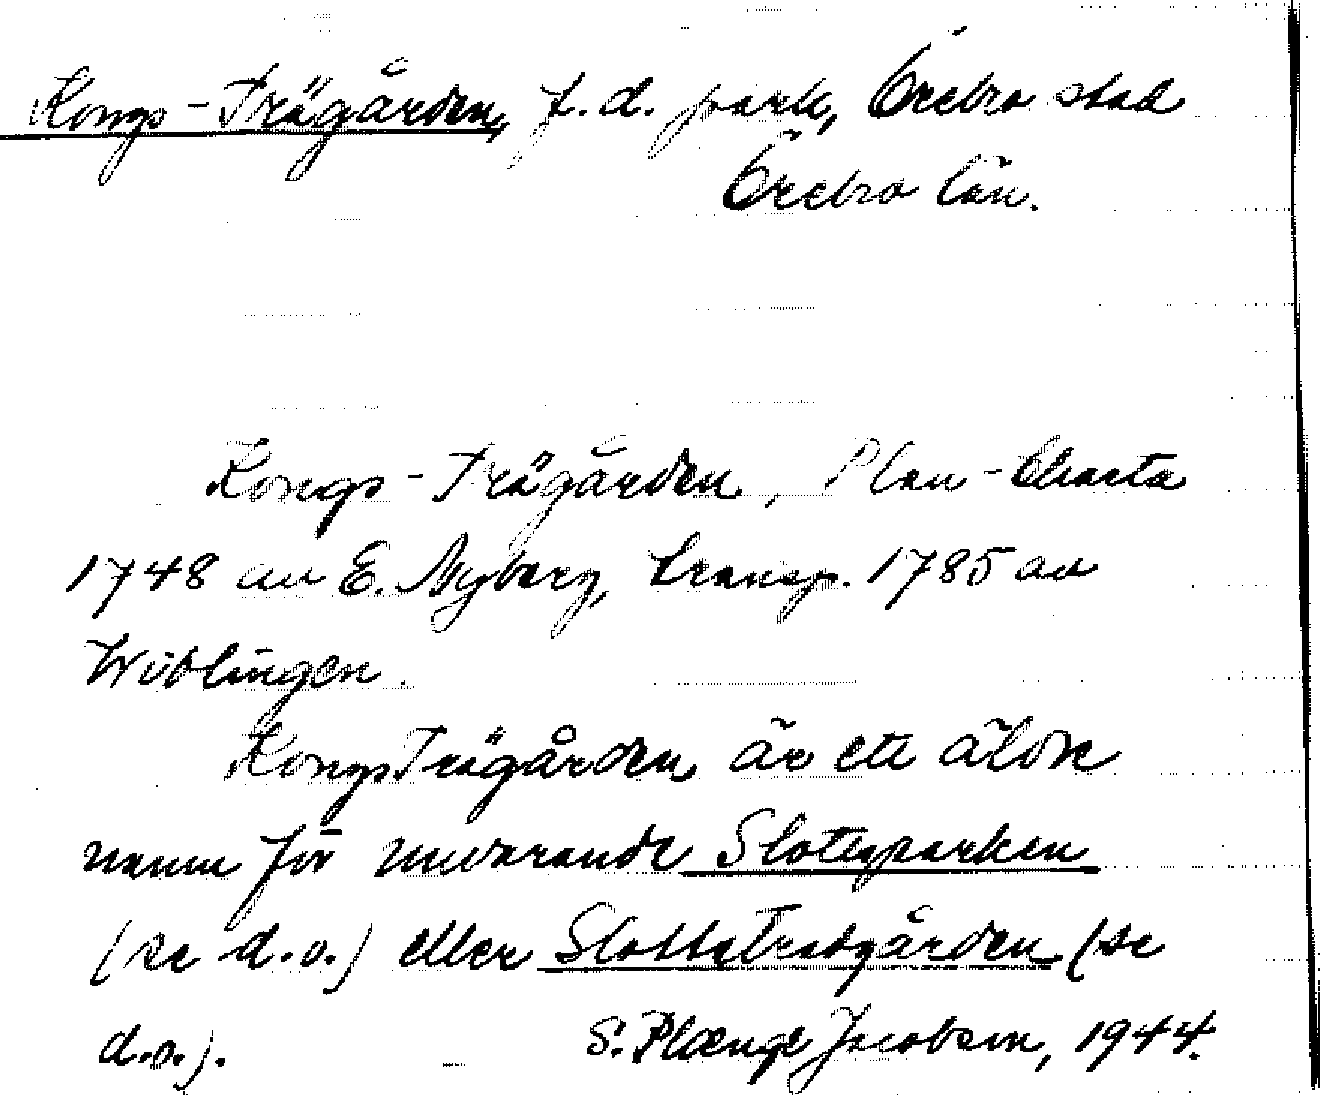 Kongs-Trägården, f.d. park, Örebro stad
Örebro län.
Kongs-Trägården, Plan-Charta
1748 av E. Nyberg, transp. 1785 av
Wiblingen.
KongsTrägården är ett äldre
namn för nuvarande Slottsparken
(se d.o.) eller Slottsträdgården (se
d.o.). S. Plænge Jacobson, 1944.